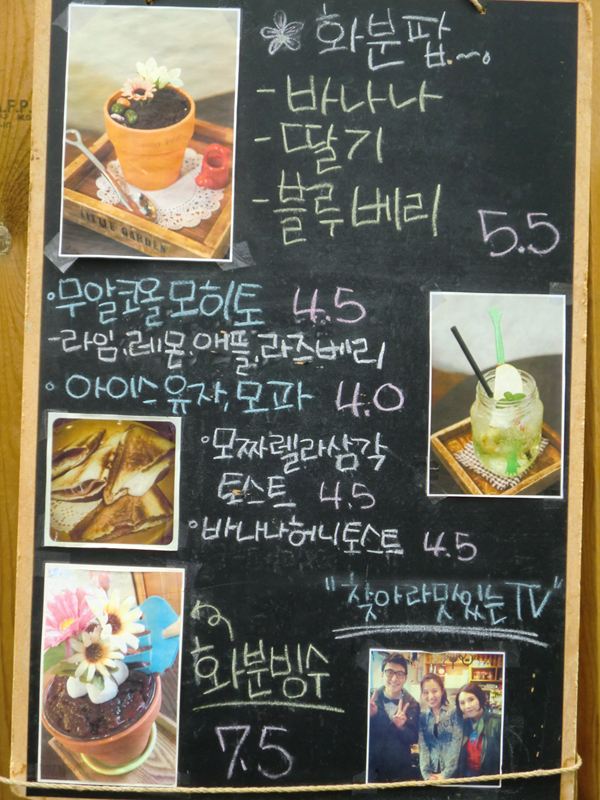 화분팝
- 바나나
- 딸기
- 블루베리
5.5
LITTLE GARDEN
·무알코올모히토 4.5
-라임,레몬,애플,라즈베리
·아이스유자,모과 4.0
·모짜렐라삼각
토스트 4.5
·바나나허니토스트 4.5
"찾아라맛있는TV"
화분빙수
7.5